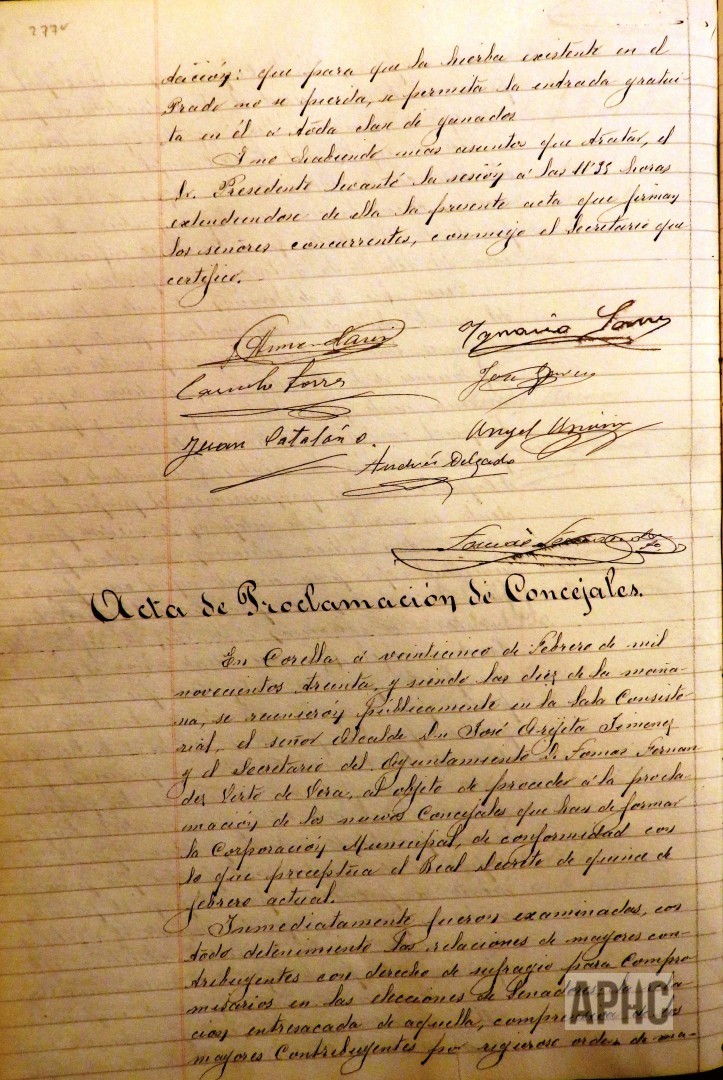 277v
tación: que para que la hierba existente en el
Prado no se pierda, se permita la entrada gratui-
ta en él á toda clase de ganados
Y no habiendo mas asuntos que tratar, el
Sr. Presidente levantó la sesión á las 11'35 horas
extendiendose de ella la presente acta que firman
los señores concurrentes, conmigo el Secretario que
certifico.
Ignacio
Camilo Torres
José
Juan Catalán O.
Angel
Andrés Delgado
Tomás Fernandez
Acta de Proclamación de Concejales.
En Corella á veinticinco de Febrero de mil
novecientos treinta, y siendo las diez de la maña-
na, se reunierón públicamente en la Sala Consisto-
rial, el señor Alcalde Dn José Arejeta Jimenez
y el Secretario del Ayuntamiento D. Tomas Fernan
dez Virto de Vera, al objeto de proceder á la procla-
mación de los nuevos Concejales que han de formar
la Corporación Municipal, de conformidad con
lo que preceptúa el Real Decreto de quince de
febrero actual.
Inmediatamente fueron examinadas, con
todo detenimiento las relaciones de mayores con-
tribuyentes con derecho de sufragio para Compro
misarios en las elecciones de Senadores
cion entresacada de aquella, de los
mayores Contribuyentes por rigieroso orden de ma-
APHC